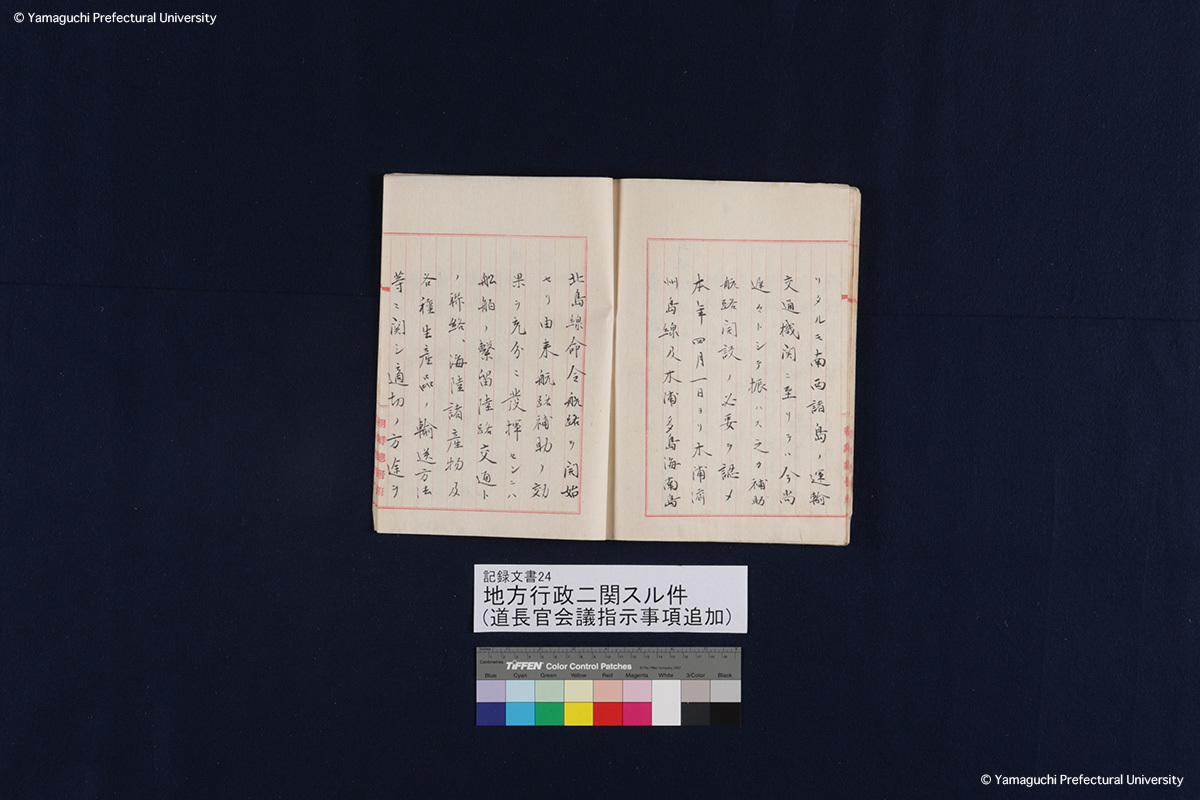 © Yamaguchi Prefectural University
リタルモ南西諸島ノ運輸
交通機関ニ至リテハ今尚
遅々トシテ振ハス之カ補助
航路開設ノ必要ヲ認メ
本年四月一日ヨリ木浦済
州島線及木浦多島海南島
北島線命令航路ヲ開始
セリ由来航路補助ノ効
果ヲ充分ニ発揮センニハ
船舶ノ繋留陸路交通ト
ノ聯絡、海陸諸産物及
各種生産品ノ輸送方法
等ニ関シ適切ノ方途ヲ
朝鮮総督府
記録文書24
地方行政二関スル件
(道長官会議指示事項追加)
Inches
Centimetres
TIFFEN Color Control Patches
© The Tiffen Company, 2007
Blue Cyan Green Yellow Red Magenta White 3/Color Black
© Yamaguchi Prefectural University